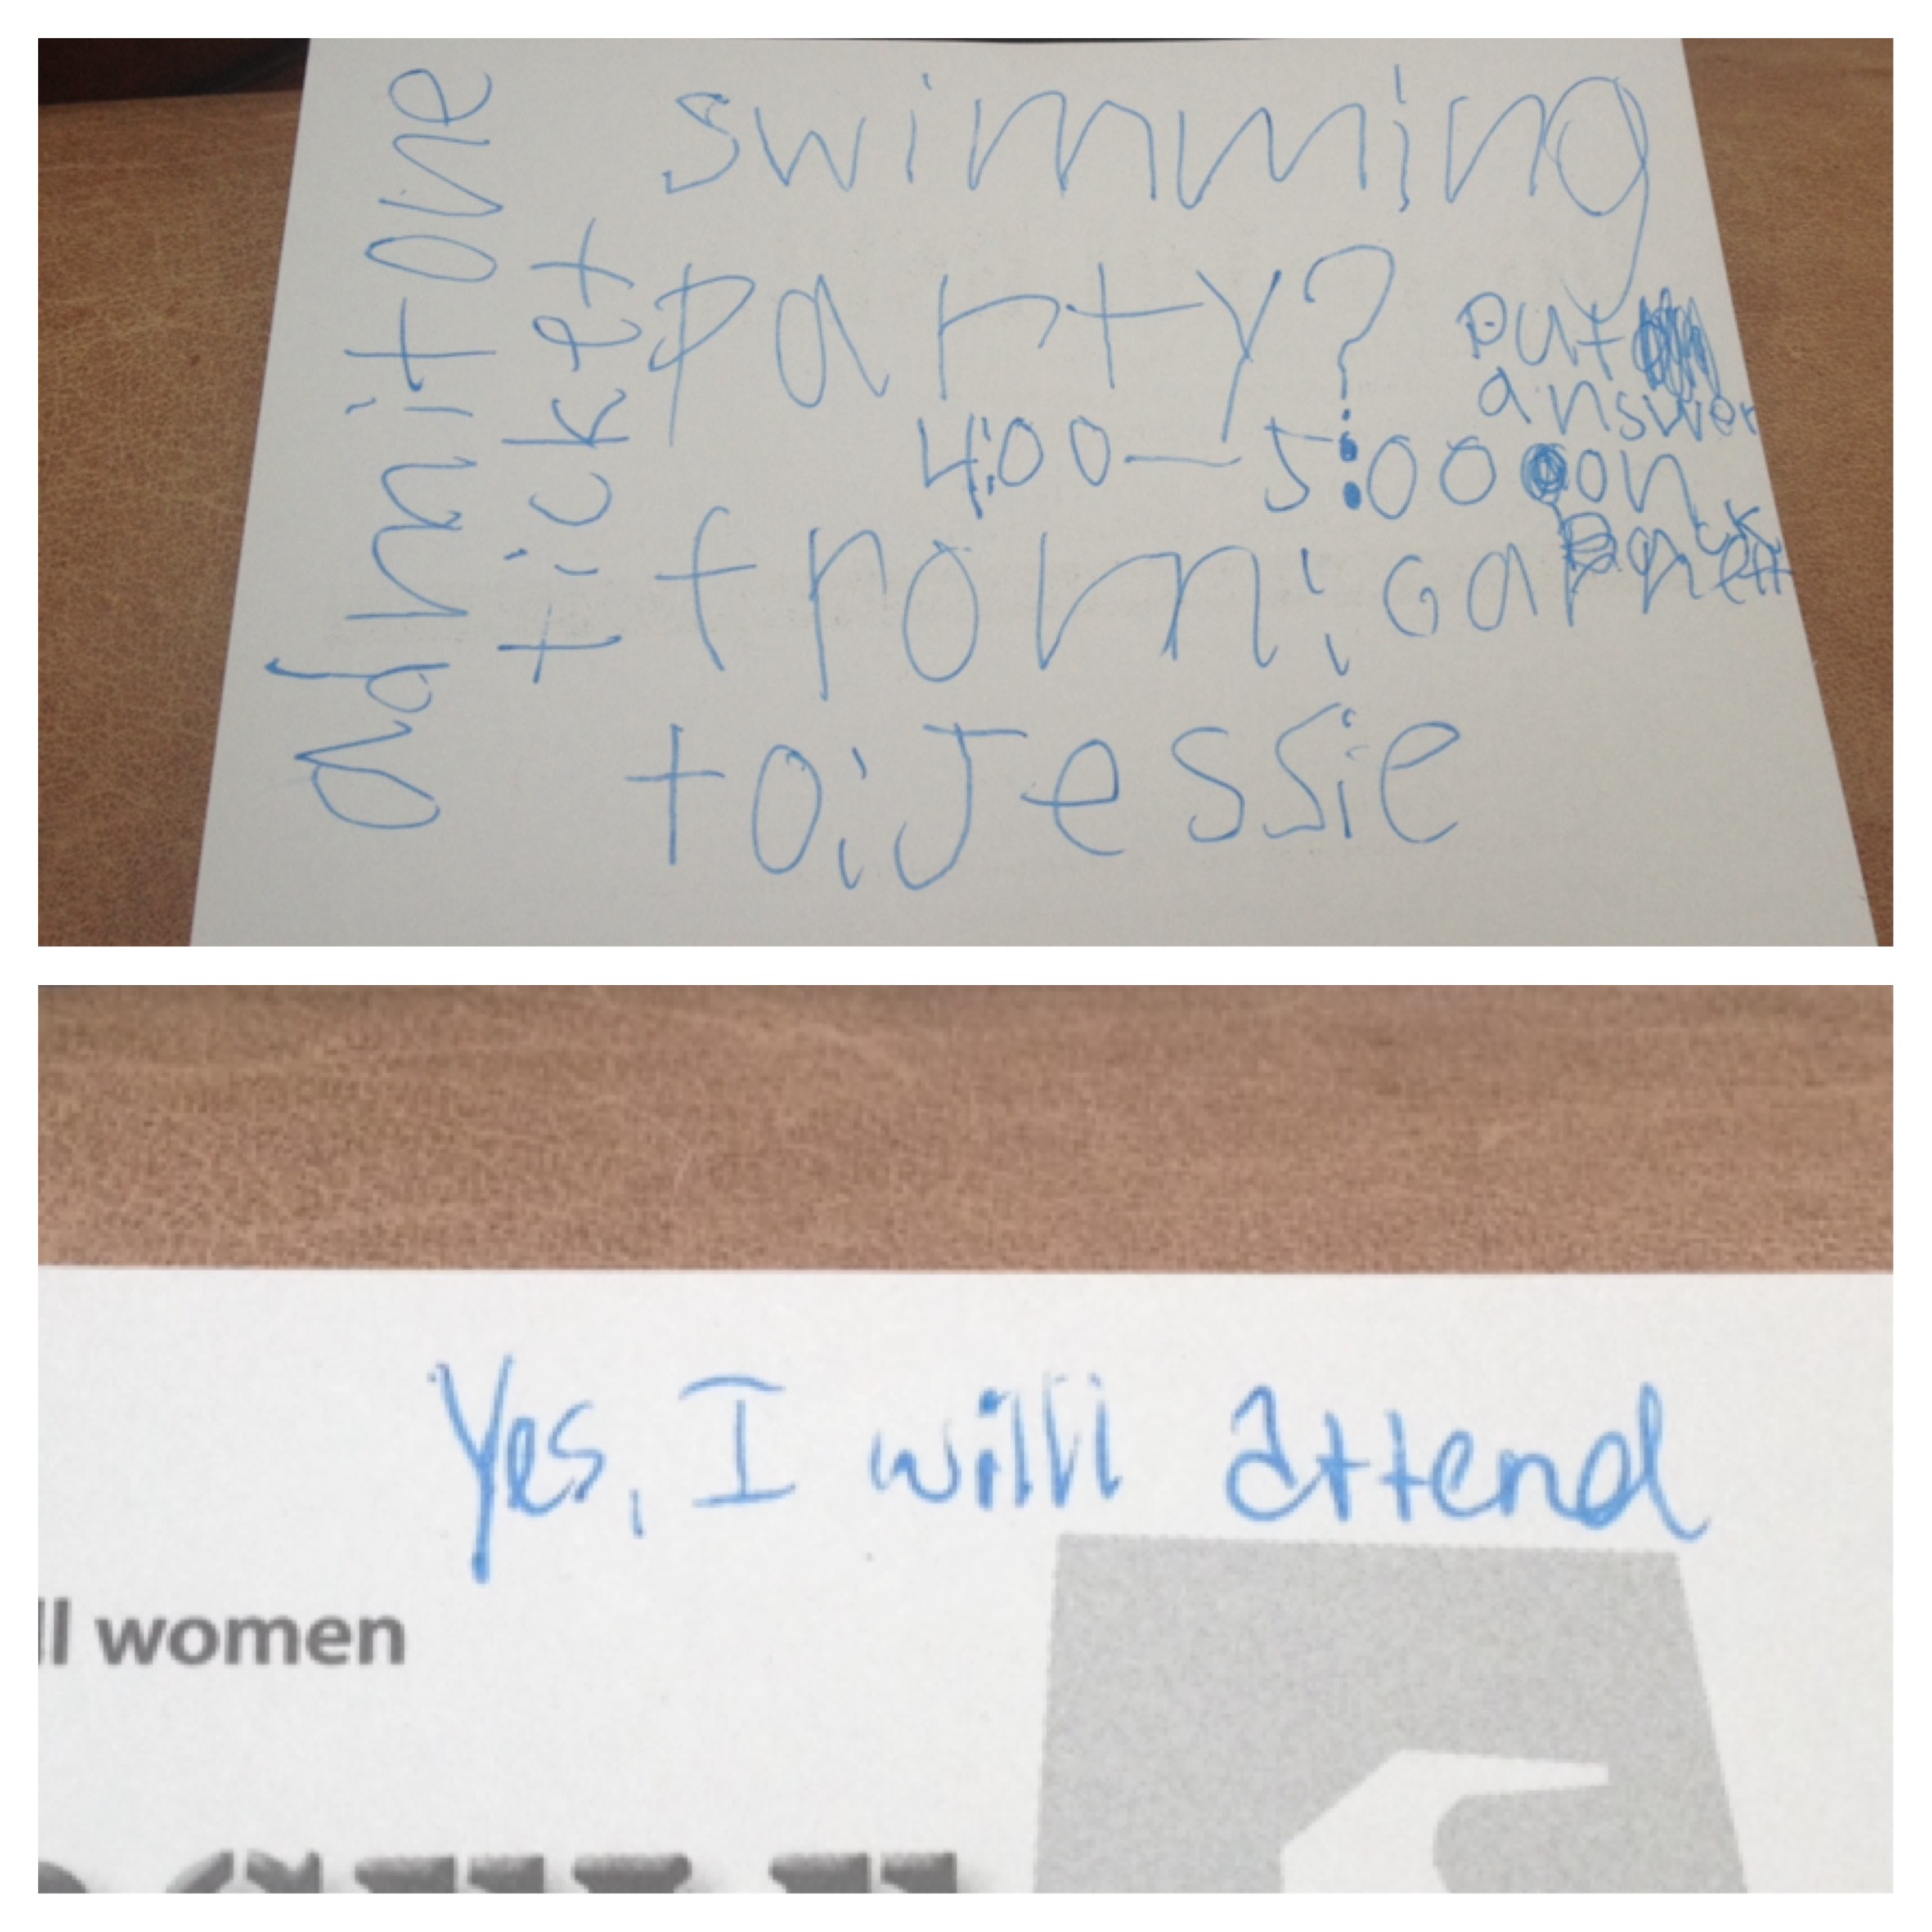 admit one
ticket
swimming
party?
put
answer
4:00—5:00 on
back
from: Garnett
to: Jessie
Yes, I will attend
ll women